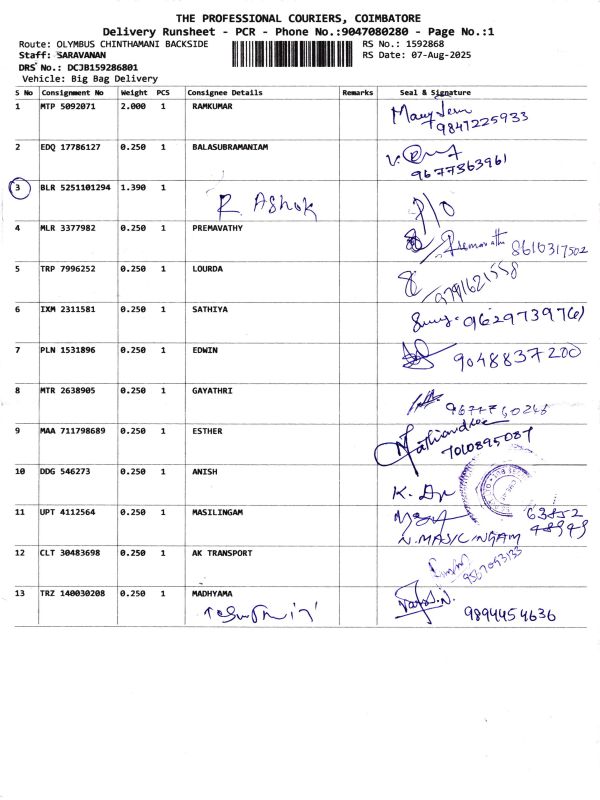 THE PROFESSIONAL COURIERS, COIMBATORE
Delivery Runsheet - PCR - Phone No.:9047080280 - Page No.:1
Route: OLYMBUS CHINTHAMANI BACKSIDE RS No.: 1592868
Staff: SARAVANAN RS Date: 07-Aug-2025
DRS No.: DCJB159286801
Vehicle: Big Bag Delivery
S No Consignment No Weight PCS Consignee Details Remarks Seal & Signature
1 MTP 5092071 2.000 1 RAMKUMAR
9847225933
2 EDQ 17786127 0.250 1 BALASUBRAMANIAM
9677363961
3 BLR 5251101294 1.390 1
R. Ashok P/O
4 MLR 3377982 0.250 1 PREMAVATHY
Premavathi 8610317502
5 TRP 7996252 0.250 1 LOURDA
9791621558
6 IXM 2311581 0.250 1 SATHIYA
9629739761
7 PLN 1531896 0.250 1 EDWIN
9048837200
8 MTR 2638905 0.250 1 GAYATHRI
9677760246
9 MAA 711798689 0.250 1 ESTHER
7010895087
10 DDG 546273 0.250 1 ANISH
11 UPT 4112564 0.250 1 MASILINGAM
63852
48949
N.MASILINGAM
12 CLT 30483698 0.250 1 AK TRANSPORT
13 TRZ 140030208 0.250 1 MADHYAMA
9894454636